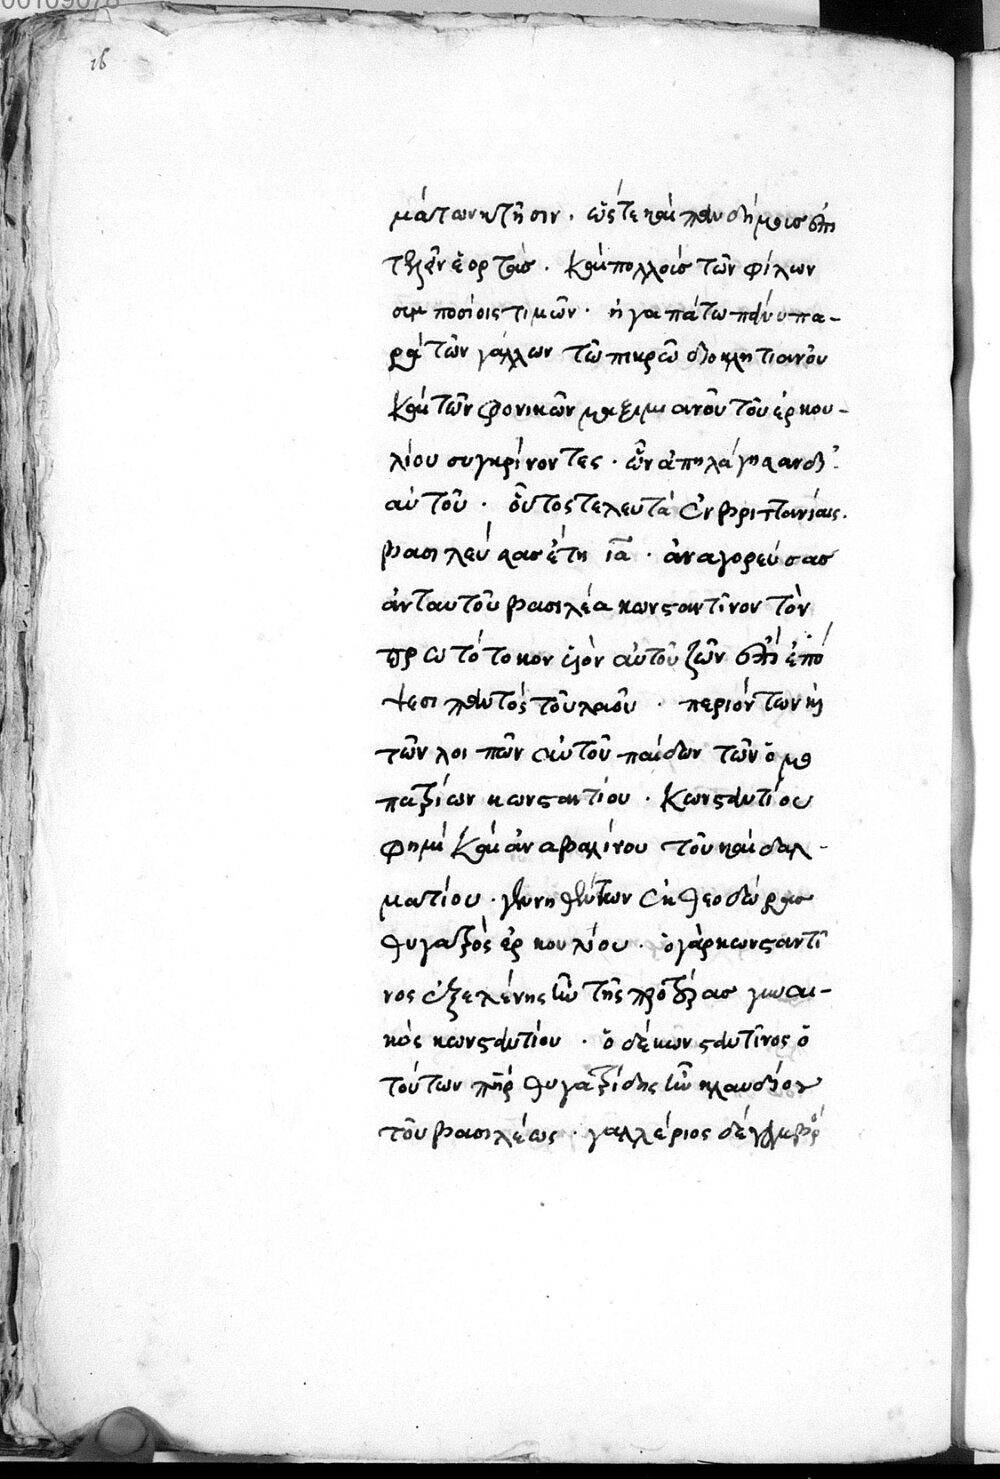 16
μάτων κτῆσιν · ὥστε καὶ πανδήμοις ἐπι
τελεῖν ἑορτὰς · καὶ πολλοῖς τῶν φίλων
συμποσίοις τιμῶν · ἠγαπᾶτω πάνυ πα-
ρὰ τῶν γάλλων τῶ πικρῶ διοκλητιανοῦ
καὶ τῶν φονικῶν μαξιμιανοῦ τοῦ ἑρκου-
λίου συγκρίνοντες · ὧν ἀπηλάγησαν δι'
αὐτοῦ · οὗτος τελευτᾶ ἐν βριττανίαις ·
βασιλεύσας ἔτη ια · ἀναγορεύσας
ἀντ αυτοῦ βασιλέα κωνσαντῖνον τὸν
πρωτότοκον υἱὸν αὐτοῦ ζῶν ἐπὶ ἐπό
ψεσι παντὸς τοῦ λαοῦ · περιόντων καὶ
τῶν λοιπῶν αὐτοῦ παίδων τῶν ὁμο
πατρίων κωνσαντίου · κωνσαντίου
φημὶ καὶ ἀναβαλίνου τοῦ καὶ δαλ-
ματίου · γεννηθέντων ἐκ θεοδώρας
θυγατρὸς ἑρκουλίου · ὁ γὰρ κωνσαντῖ
νος ἐξ ελένης ἦν τῆς προτέρας γυναι-
κὸς κωνσαντίου · ὁ δὲ κωνσαντῖνος ὁ
τούτων πηρ θυγατρίδης ἦν κλαυδίου
τοῦ βασιλέως · γαλλέριος δὲ γαμβρὸ